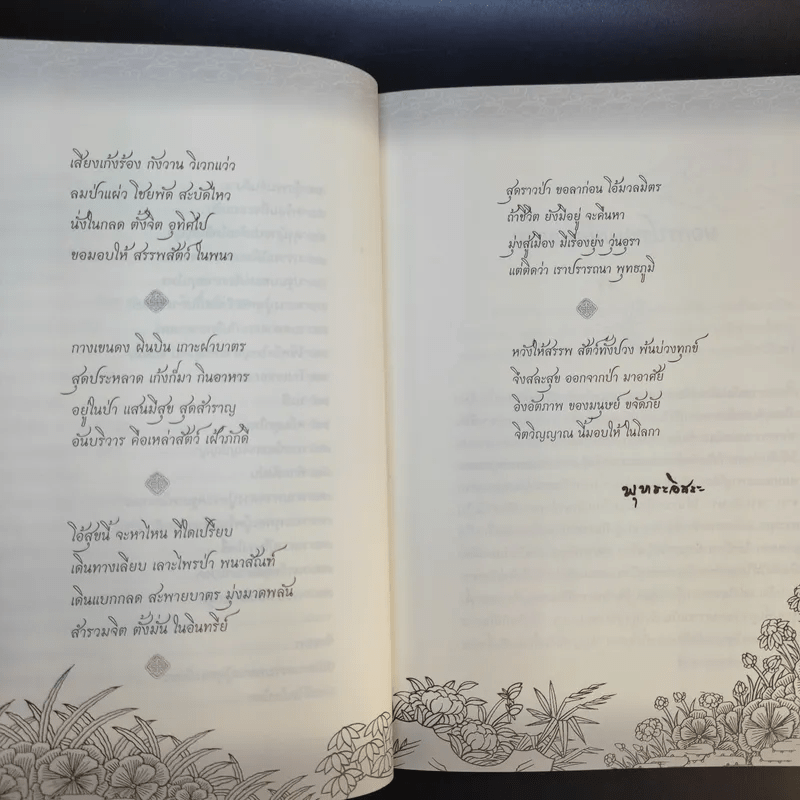 เสียงเก้งร้อง กังวาน วิเวกแว่ว
ลมป่าแผ่ว โชยพัด สะบัดไหว
นั่งในกลด ตั้งจิต อุทิศไป
ขอมอบให้ สรรพสัตว์ ในพนา
กางเขนดง ผินบิน เกาะฝาบาตร
สุดประหลาด เก้งก็มา กินอาหาร
อยู่ในป่า แสนมีสุข สุดสำราญ
อันบริวาร คือเหล่าสัตว์ เฝ้าภักดี
โอ้สุขนี้ จะหาไหน ที่ใดเปรียบ
เดินทางเลียบ เลาะไพรป่า พนาสัณฑ์
เดินแบกกลด สะพายบาตร มุ่งมาดพลัน
สำรวมจิต ตั้งมั่น ในอินทรีย์
สุดราวป่า ขอลาก่อน โอ้มวลมิตร
ถ้าชีวิต ยังมีอยู่ จะคืนหา
มุ่งสู่เมือง มีเรื่องยุ่ง วุ่นอุรา
แต่ติดว่า เราปรารถนา พุทธภูมิ
หวังให้สรรพ สัตว์ทั้งปวง พ้นบ่วงทุกข์
จึงสละสุข ออกจากป่า มาอาศัย
อิงอัตภาพ ของมนุษย์ ขจัดภัย
จิตวิญญาณ นี้มอบให้ ในโลกา
พุทธะอิสระ